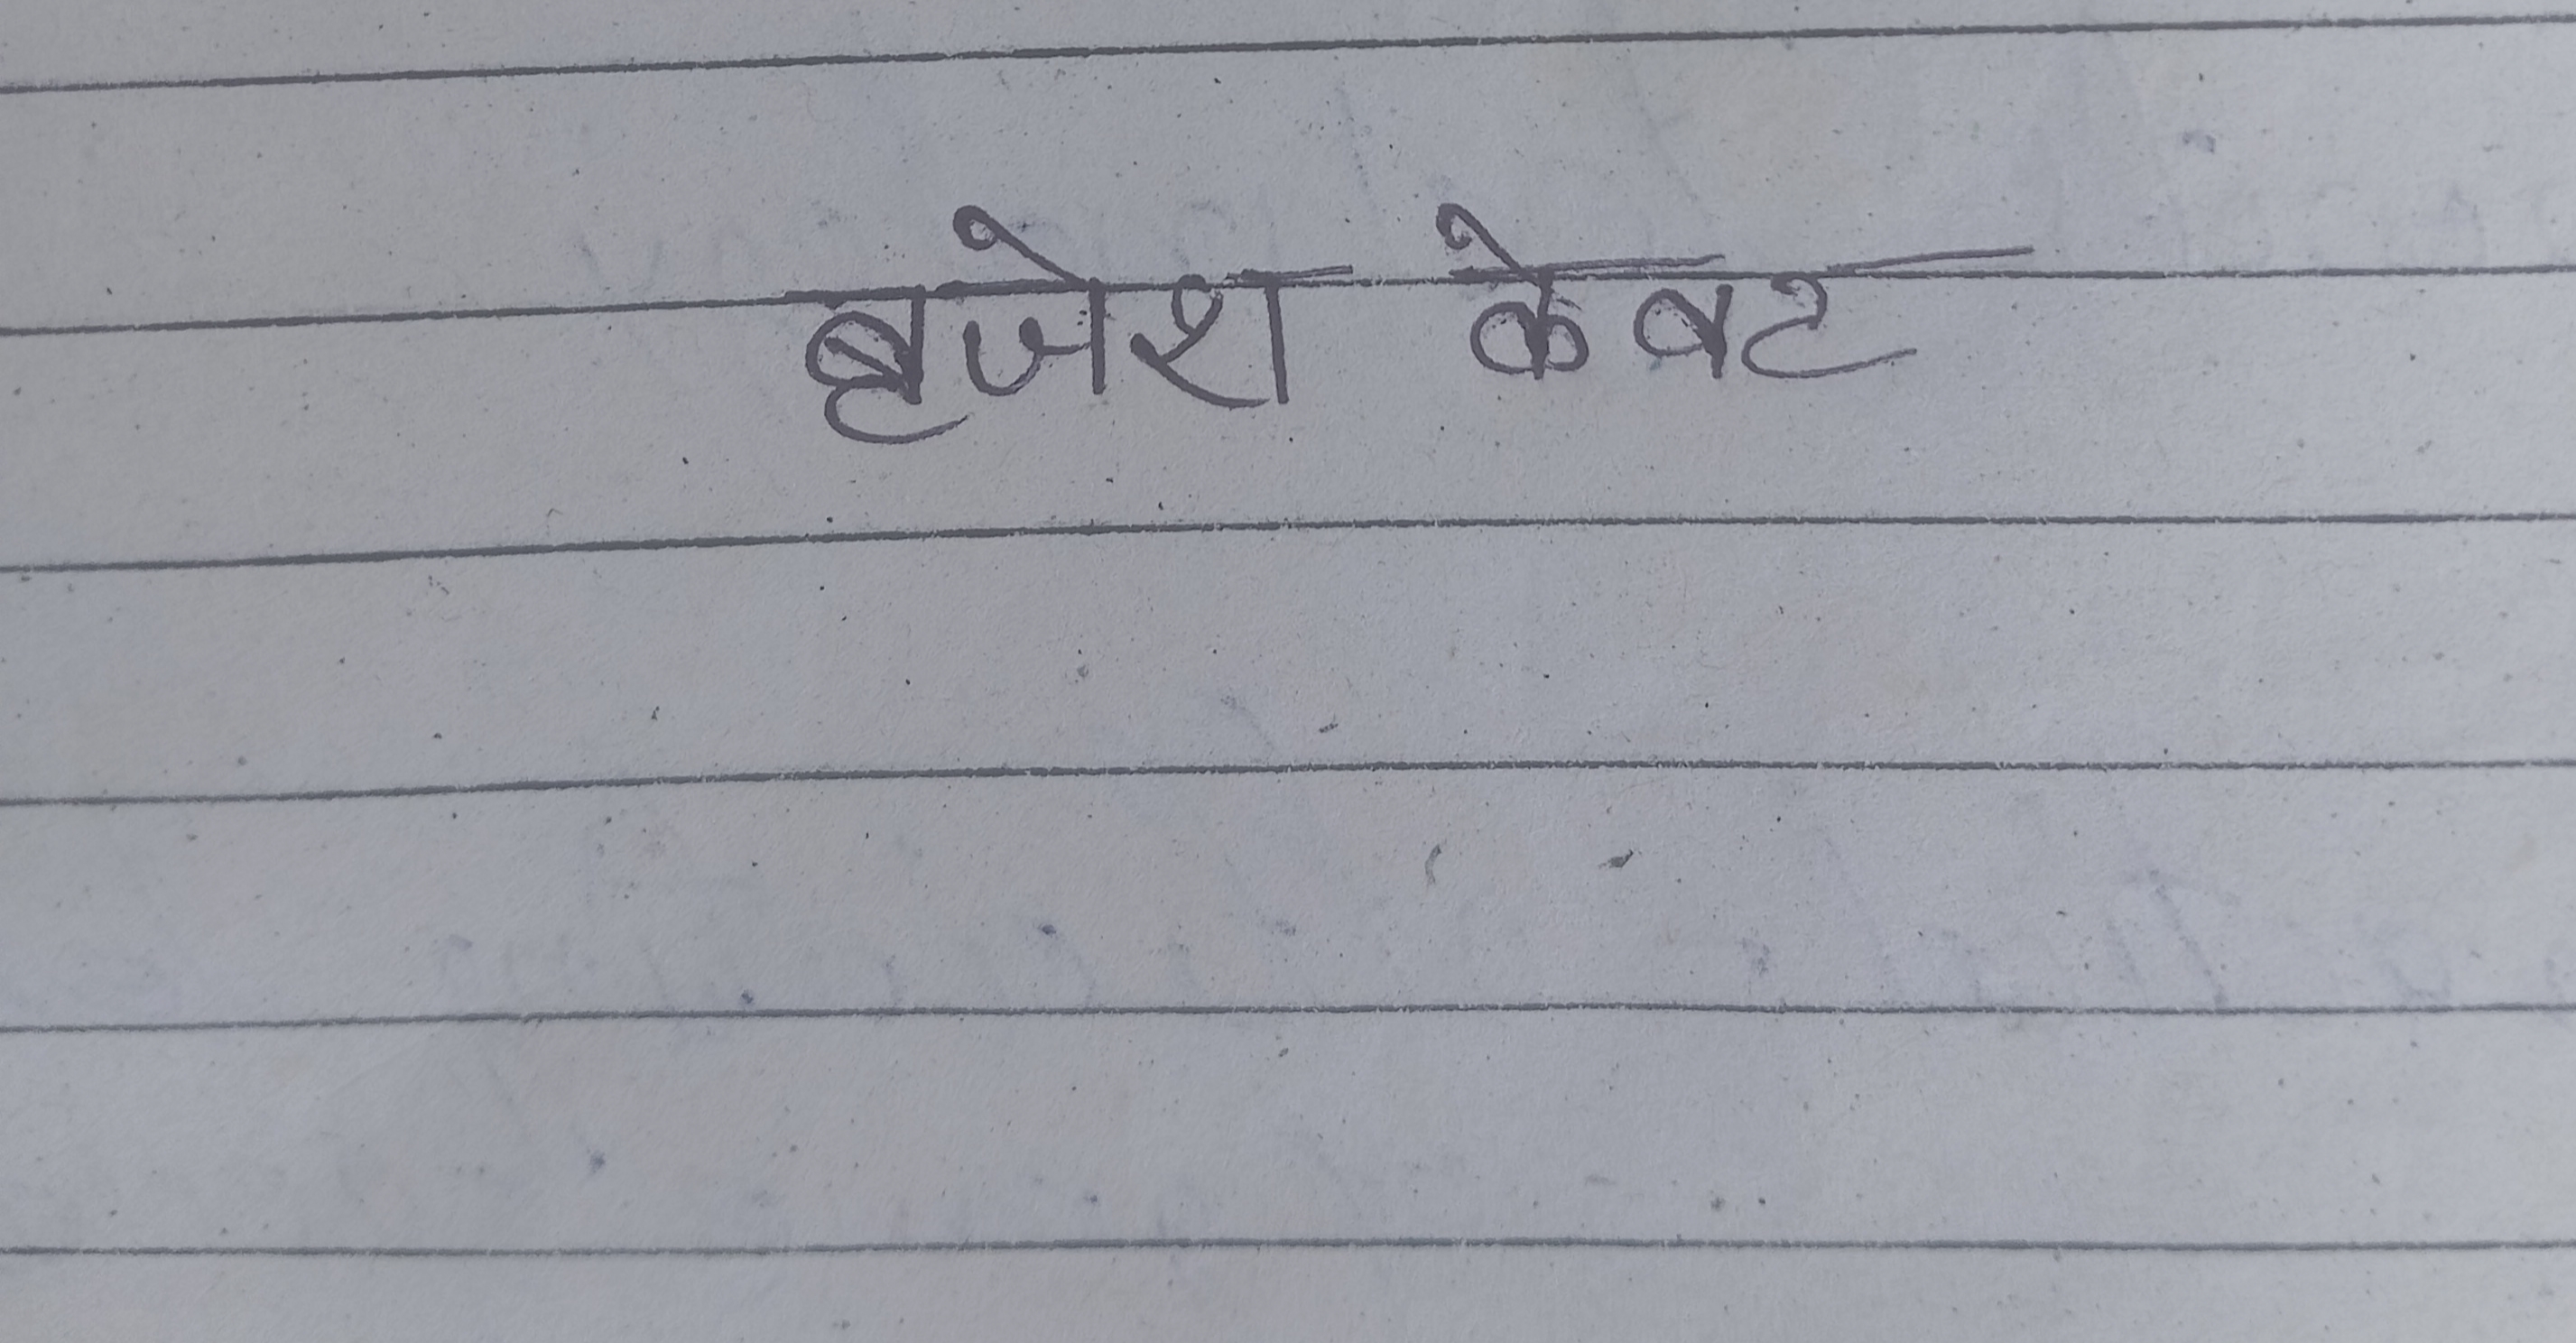 बृजेश केवट